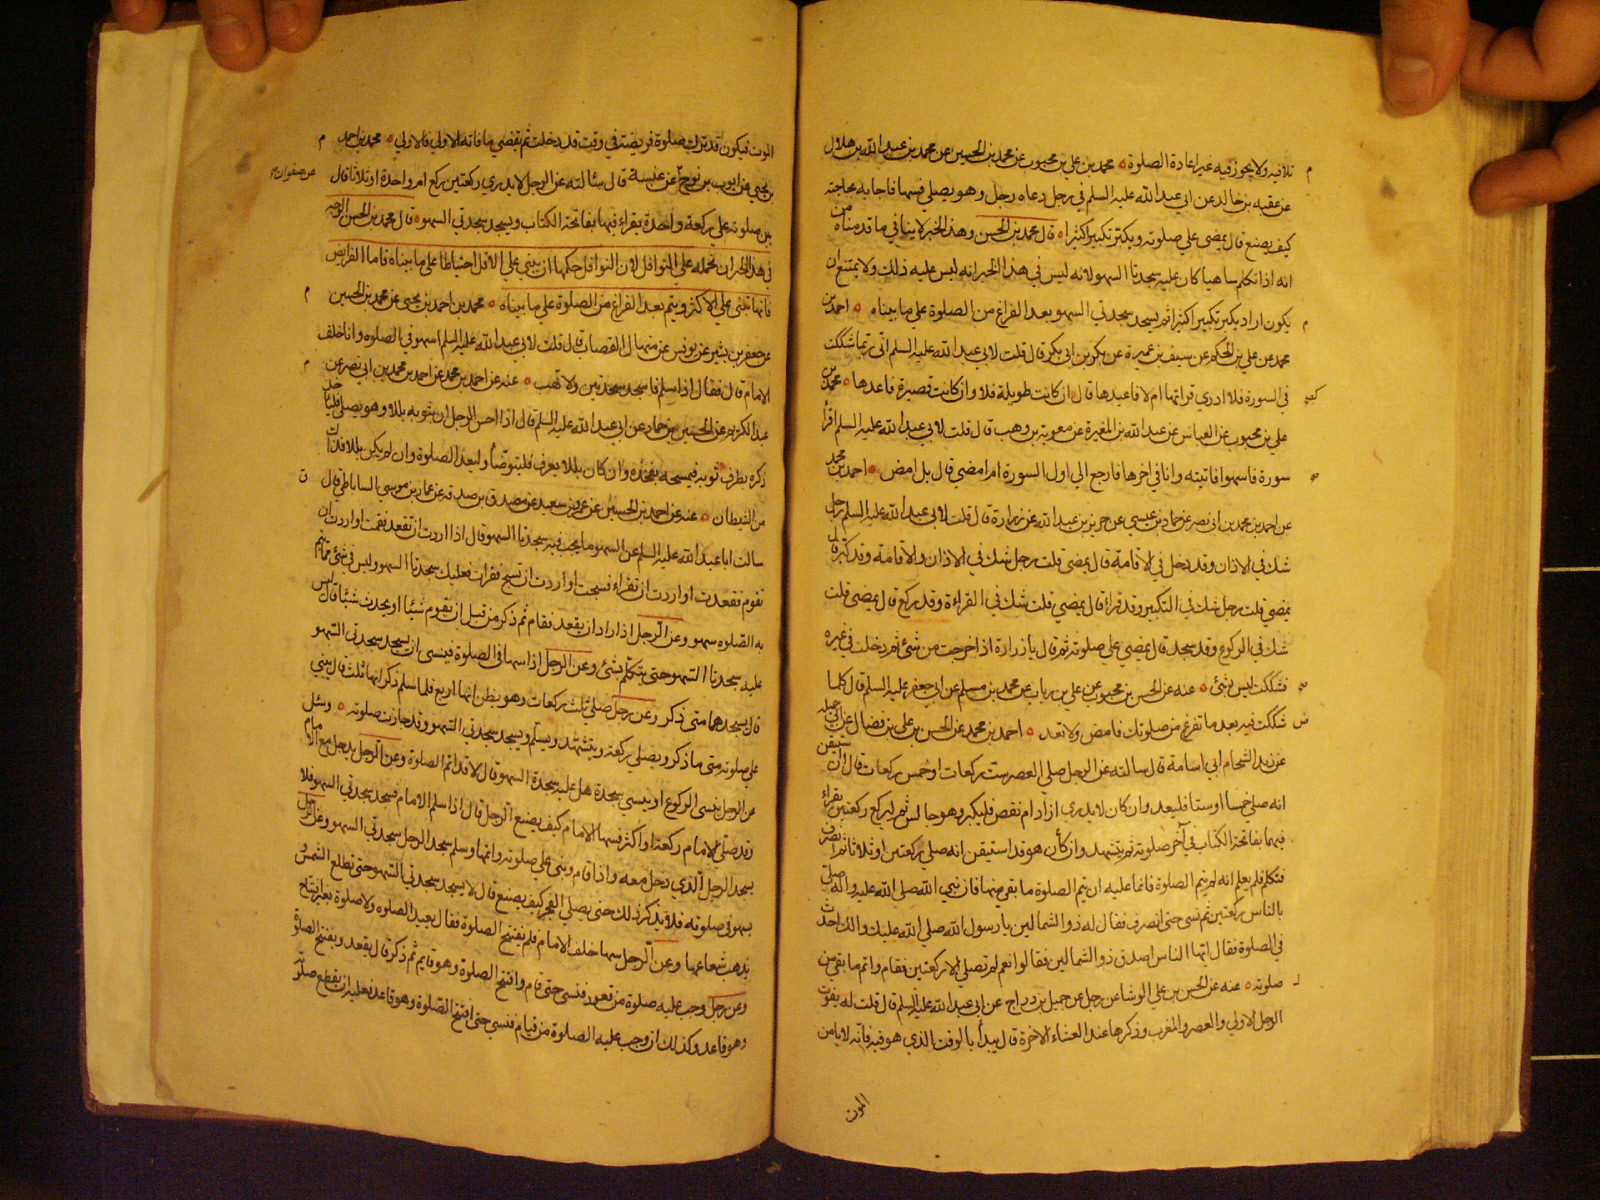 تلافيه ولا يجوز فيه غير اعادة الصلوة محمد بن علي بن محبوب عن محمد بن الحسين عن محمد بن عبد الله بن هلال
عن عقبه بن خالد عن ابي عبد الله عليه السلم في رجل دعاه رجل وهو يصلي فسها فاجابه بحاجته
كيف يصنع قال يمضي علي صلوته ويكبر تكبيرا كثيرا قال محمد بن الحسن وهذا الخبر لا ينافي ما قدمناه من
انه اذا تكلم ساهيا كان عليه سجدتا السهو لانه ليس في هذا الخبر انه ليس عليه ذلك ولا يمتنع ان
يكون اراد يكبر تكبيرا كثيرا ثم يسجد سجدتي السهو بعد الفراغ من الصلوة علي ما بيناه احمد بن
محمد عن علي بن الحكم عن سيف بن عميرة عن بكر بن ابي بكر قال قلت لابي عبد الله عليه السلم اني ربما شككت
في السورة فلا ادري قراتها ام لا فاعيدها قال ان كانت طويلة فلا وان كانت قصيرة فاعدها محمد بن
علي بن محبوب عن العباس عن عبد الله بن المغيرة عن معوية بن وهب قال قلت لابي عبد الله عليه السلم اقرأ
سورة فاسهوا فانتبه وانا في اخرها فارجع الي اول السورة ام امضي قال بل امض احمد بن محمد
عن احمد بن محمد بن ابي نصر عن حماد بن عيسي عن حريز بن عبد الله عن زرارة قال قلت لابي عبد الله عليه السلم رجل
شك في الاذان وقد دخل في الاقامة قال يمضي قلت رجل شك في الاذان والاقامة وقد كبر قال
يمضي قلت رجل شك في التكبير وقد قرا قال يمضي قلت شك في القراءة وقد ركع قال يمضي قلت
شك في الركوع وقد سجد قال يمضي علي صلوته ثم قال يا زرارة اذا خرجت من شئ ثم دخلت في غيره
فشككت ليس بشئ عنه عن الحسن بن محبوب عن علي بن رباب عن محمد بن مسلم عن ابي جعفر عليه السلم قال كلما
شككت فيه بعد ما تفرغ من صلوتك فامض ولا تعد احمد بن محمد عن الحسن بن علي بن فضال عن ابي جميله
عن زيد الشحام ابي اسامة قال سالته عن الرجل صلي العصر ست ركعات او خمس ركعات قال ان استيقن
انه صلي خمسا او ستا فليعد وان كان لا يدري ازاد ام نقص فليكبر وهو جالس ثم ليركع ركعتين يقراء
فيهما بفاتحة الكتاب في آخر صلوته ثم يتشهد وان كان هو قد استيقن انه صلي ركعتين او ثلاثا ثم انصرف
فتكلم فلم يعلم انه لم يتم الصلوة فانما عليه ان يتم الصلوة ما بقي منها فان نبي الله صلي الله عليه واله صلي
بالناس ركعتين ثم نسي حتي انصرف فقال له ذو الشمالين يا رسول الله صلي الله عليك والك احدث
في الصلوة فقال ايها الناس اصدق ذو الشمالين فقالوا نعم لم تصلي الا ركعتين فقام واتم ما بقي من
صلوته عنه عن الحسن بن علي الوشا عن رجل عن جميل بن دراج عن ابي عبد الله عليه السلم قال قلت له يفوت
الرجل الاولي والعصر والمغرب وذكرها عند العشاء الاخرة قال يبدأ بالوقت الذي هو فيه فانه لا يامن
الموت
الموت فيكون قد ترك صلوة فريضة في وقت قد دخلت ثم يقضي ما فاته الاولي فالاولي محمد بن احمد
بن يحيي عن ايوب بن نوح عن عنبسة قال سالته عن الرجل لا يدري ركعتين ركع ام واحدة او ثلاثا قال
عن صفوان
يبن صلوته علي ركعة واحدة يقراء فيها بفاتحة الكتاب ويسجد سجدتي السهو قال محمد بن الحسن الوجه
في هذا الخبر ان نحمله علي النوافل لان النوافل حكمها ان يبني علي الاقل احتياطا علي ما بيناه فاما الفرايض
فانها تبني علي الاكثر ويتم بعد الفراغ من الصلوة علي ما بيناه محمد بن احمد بن يحيي عن محمد بن الحسين
عن جعفر بن بشير عن يونس عن منهال القصاب قال قلت لابي عبد الله عليه السلم اسهو في الصلوه وانا خلف
الامام قال فقال اذا سلم فاسجد سجدتين ولا تهب عنه عن احمد بن محمد عن احمد بن محمد بن ابي نصر عن
عبد الكريم عن الحسين بن حماد عن ابي عبد الله عليه السلم قال اذا احس الرجل ان بثوبه بللا وهو يصلي فلياخذ
ذكره بطرف ثوبه فيمسحه بفخذه وان كان بللا يعرف فليتوضأ وليعد الصلوة وان لم يكن بللا فذلك
من الشيطان عنه عن احمد بن الحسن عن عمرو بن سعيد عن مصدق بن صدقه عن عمار بن موسي الساباطي قال
سالت ابا عبد الله عليه السلم عن السهو ما يجب فيه سجدتا السهو قال اذا اردت ان تقعد فقمت او اردت ان
تقوم فقعدت او اردت ان تقراء فسبحت او اردت ان تسبح فقرات فعليك سجدتا السهو وليس في شئ مما يتم
به الصلوه سهو وعن الرجل اذا اراد ان يقعد فقام ثم ذكر من قبل ان يقوم شيئا او يحدث شيئا قال ليس
عليه سجدتا السهو حتي يتكلم بشئ وعن الرجل اذا سها في الصلوة فينسي ان يسجد سجدتي السهو
قال يسجدهما متي ذكر وعن رجل صلي ثلث ركعات وهو يظن انها اربع فلما سلم ذكر انها ثلث قال يبني
علي صلوته متي ما ذكر ويصلي ركعة ويتشهد ويسلم ويسجد سجدتي السهو وقد جازت صلوته وسئل
عن الرجل ينسي الركوع او ينسي سجدة هل عليه سجدة السهو قال لا قد اتم الصلوة وعن الرجل يدخل مع الامام
وقد صلي الامام ركعة او اكثر فسها الامام كيف يصنع الرجل قال اذا سلم الامام فسجد سجدتي السهو فلا
يسجد الرجل الذي دخل معه واذا قام وبني علي صلوته واتمها وسلم سجد الرجل سجدتي السهو وعن الرجل
يسهو في صلوته فلا يذكر ذلك حتي يصلي الفجر كيف يصنع قال لا يسجد سجدتي السهو حتي تطلع الشمس و
يذهب شعاعها وعن الرجل سها خلف الامام فلم يفتتح الصلوة فقال يعيد الصلوه ولا صلوة بغير افتتاح
وعن رجل وجب عليه صلوة من قعود فنسي حتي قام وافتتح الصلوة وهو قايم ثم ذكر قال يقعد ويفتتح الصلوة
وهو قاعد وكذلك ان وجب عليه الصلوة من قيام فنسي حتي افتتح الصلوة وهو قاعد فعليه ان يقطع صلوته